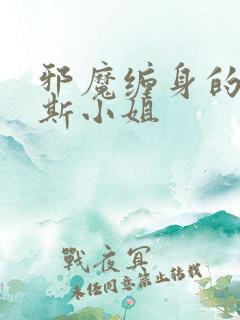 邪魔缠身的
斯小姐
戰夜冥
未经同意禁止转载